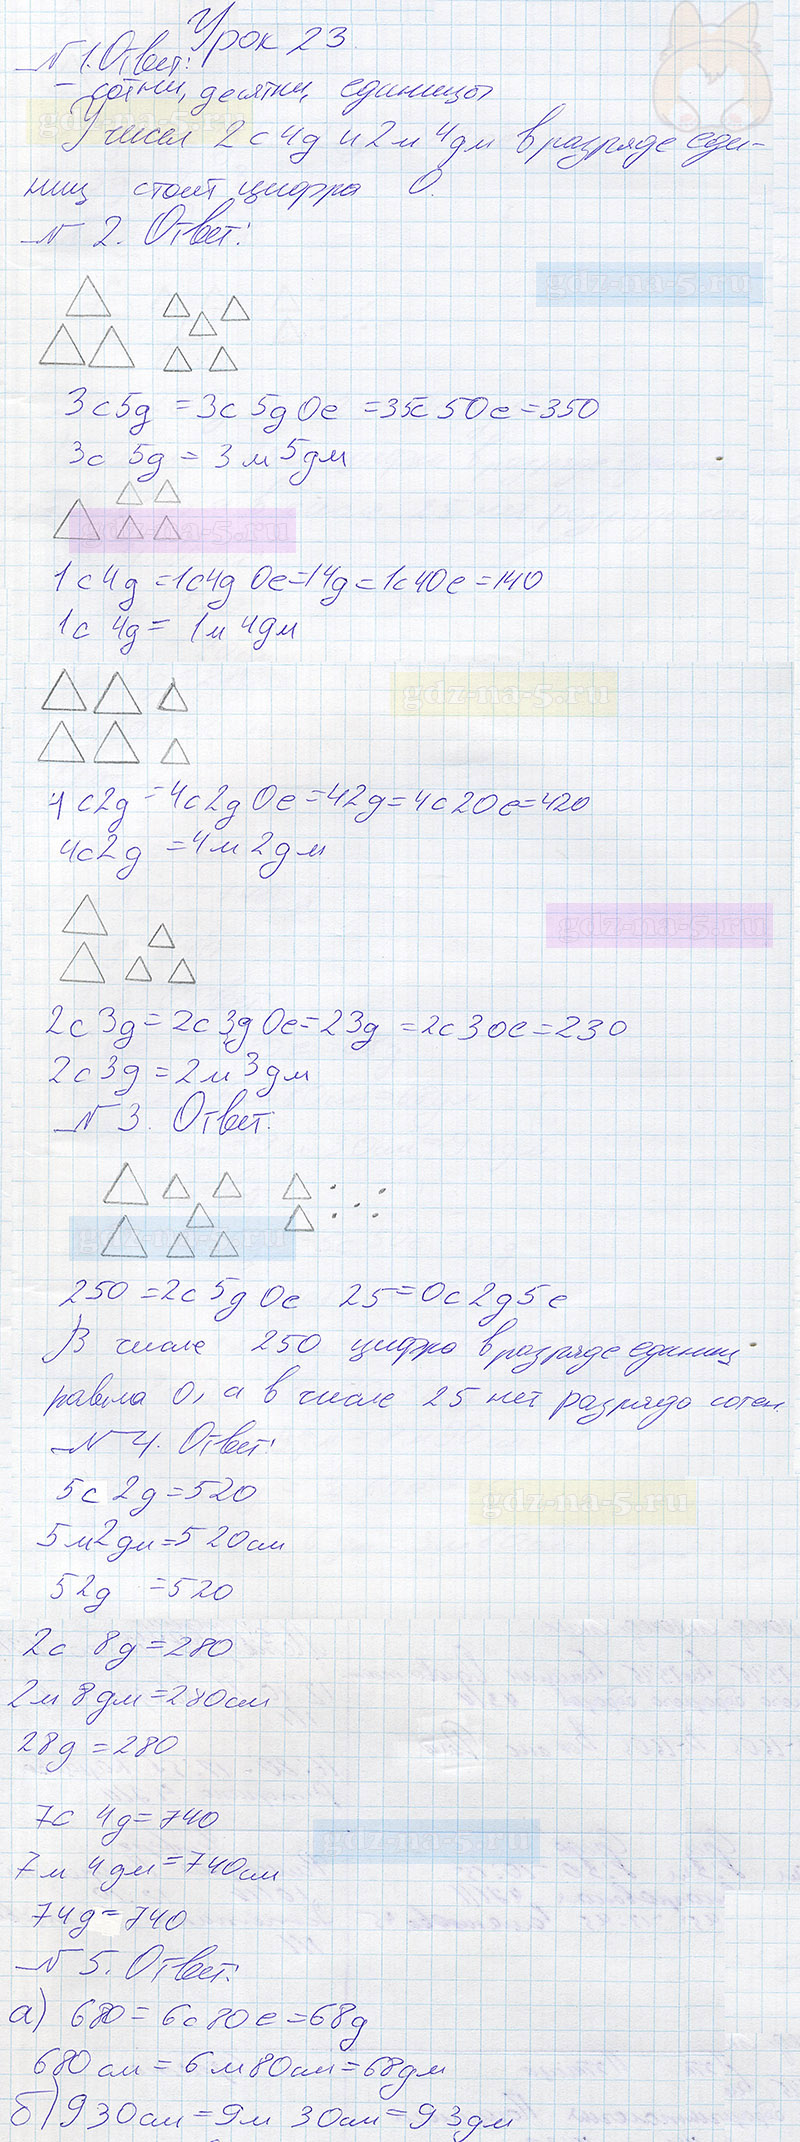 Урок 23.
№ 1. Ответ:
- сотни, десятки, единицы
gdz-na-5.ru
У чисел 2с 4д и 2м 4дм в разряде еди-
ниц стоит цифра 0.
№ 2. Ответ:
gdz-na-5.ru
3с5д = 3с 5д 0е = 35с 50е = 350
3с 5д = 3м 5дм
gdz-na-5.ru
1с 4д = 1с4д 0е = 14д = 1с 40е = 140
1с 4д = 1м 4дм
gdz-na-5.ru
4с2д = 4с2д 0е = 42д = 4с 20е = 420
4с2д = 4м 2дм
gdz-na-5.ru
2с 3д = 2с 3д 0е = 23д = 2с 30е = 230
2с 3д = 2м 3дм
№ 3. Ответ:
gdz-na-5.ru
250 = 2с 5д 0е 25 = 0с 2д 5е
В числе 250 цифра в разряде единиц
равна 0, а в числе 25 нет разряда сотен.
№ 4. Ответ:
5с 2д = 520
gdz-na-5.ru
5м2дм = 520см
52д = 520
2с 8д = 280
2м 8дм = 280см
28д = 280
7с 4д = 740
gdz-na-5.ru
7м 4дм = 740см
74д = 740
№ 5. Ответ:
а) 680 = 6с 80е = 68д
680 см = 6м 80см = 68дм
б) 930см = 9м 30см = 93дм